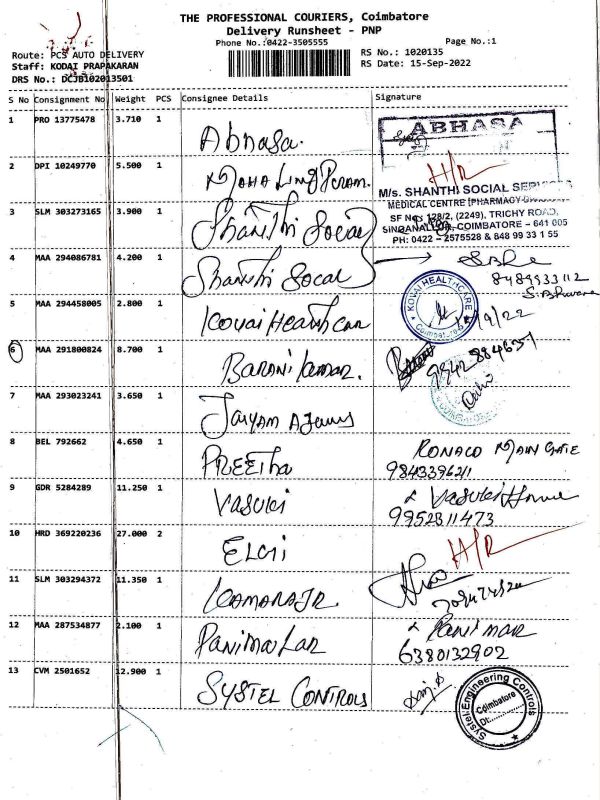 THE PROFESSIONAL COURIERS, Coimbatore
Delivery Runsheet - PNP
Phone No.:0422-3505555 Page No.:1
Route: PCS AUTO DELIVERY RS No.: 1020135
Staff: KODAI PRAPAKARAN RS Date: 15-Sep-2022
DRS No.: DCJB102013501
S No Consignment No Weight PCS Consignee Details Signature
1 PRO 13775478 3.710 1 Abhasa. ABHASA
H/R
2 DPI 10249770 5.500 1 Mahalingpuram.
M/s. SHANTHI SOCIAL SERVICES
MEDICAL CENTRE (PHARMACY
3 SLM 303273165 3.900 1 Shanthi Social SF No. 128/2, (2249), TRICHY ROAD,
SINGANALLUR, COIMBATORE – 641 005
PH: 0422 – 2575528 & 848 99 33 1 55
4 MAA 294086781 4.200 1 Shanthi Socal
8489933112
5 MAA 294458005 2.800 1 Kovai Healthcar KOVAI HEALTHCARE
Coimbatore
/9/22
6 MAA 291800824 8.700 1 Barani Kumar.
7 MAA 293023241 3.650 1
8 BEL 792662 4.650 1 Preetha MAIN GATE
9 GDR 5284289 11.250 1 Vasuki Vasuki
9952811473
10 HRD 369220236 27.000 2 ELGi H/R
11 SLM 303294372 11.350 1 Kamaraj R.
12 MAA 287534877 2.100 1 Panimalar Panimar
6380132902
13 CVM 2501652 12.900 1 SYSTEL CONTROLS Systel Engineering Controls
Coimbatore
Dt: